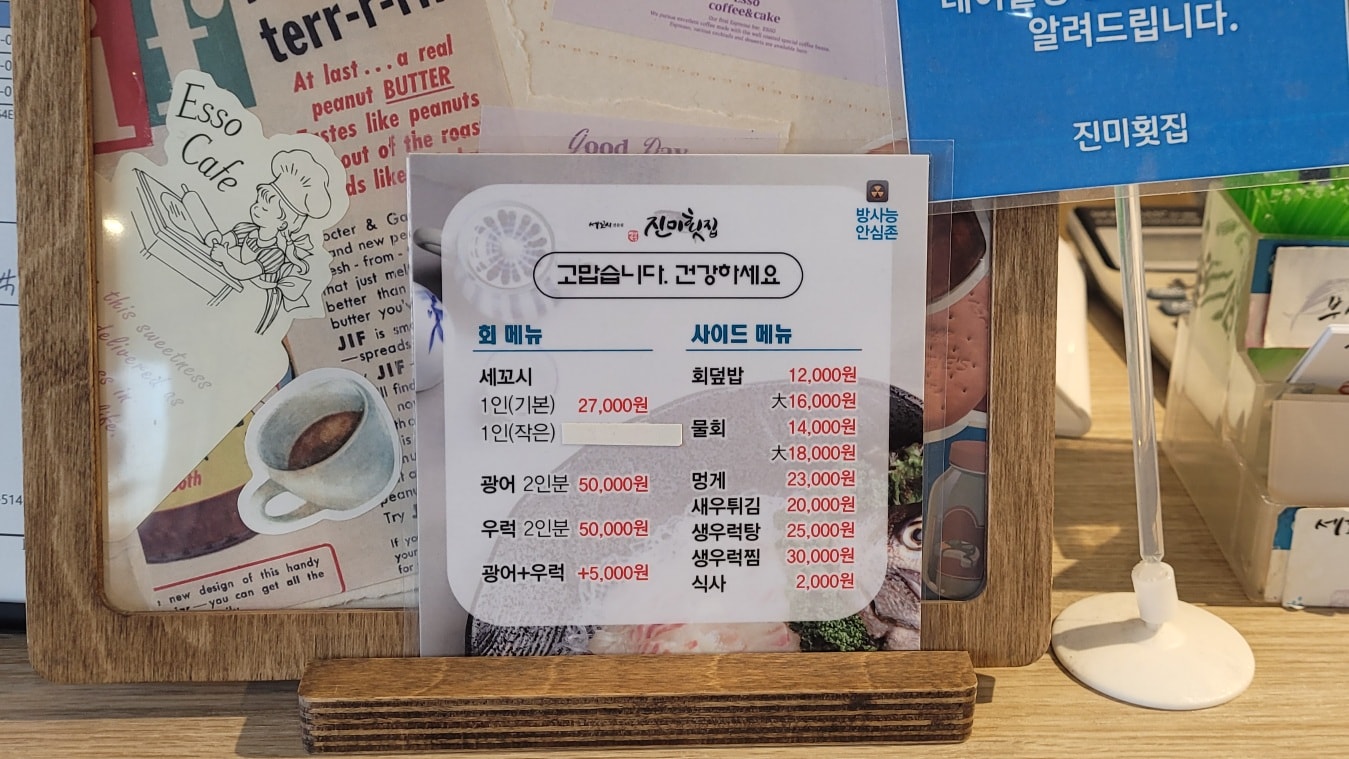 terr-r-r
At last...a real
peanut BUTTER
Tastes like peanuts
out of the roas
ds like
Esso
Cafe
this sweetness
delivered as
coffee&cake
Good Day
알려드립니다.
진미횟집
방사능
안심존
세꼬시
진미횟집
고맙습니다. 건강하세요
회 메뉴
세꼬시
1인(기본) 27,000원
1인(작은)
광어 2인분 50,000원
우럭 2인분 50,000원
광어+우럭 +5,000원
사이드 메뉴
회덮밥 12,000원
大16,000원
물회 14,000원
大18,000원
멍게 23,000원
새우튀김 20,000원
생우럭탕 25,000원
생우럭찜 30,000원
식사 2,000원
and new pe
that just mel
better than
butter you'v
JIF is sm
—spreads
JIF
new design of this handy
you can get all the